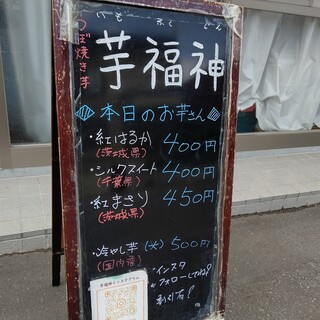 つぼ焼き芋
いも ふく じん
芋福神
本日のお芋さん
・紅はるか 400円
(茨城県)
・シルクスイート 400円
(千葉県)
・紅まさり 450円
(茨城県)
・冷やし芋 (大) 500円
(国内産)
・インスタ
フォローしてね?
割引有!
芋福神インスタグラム